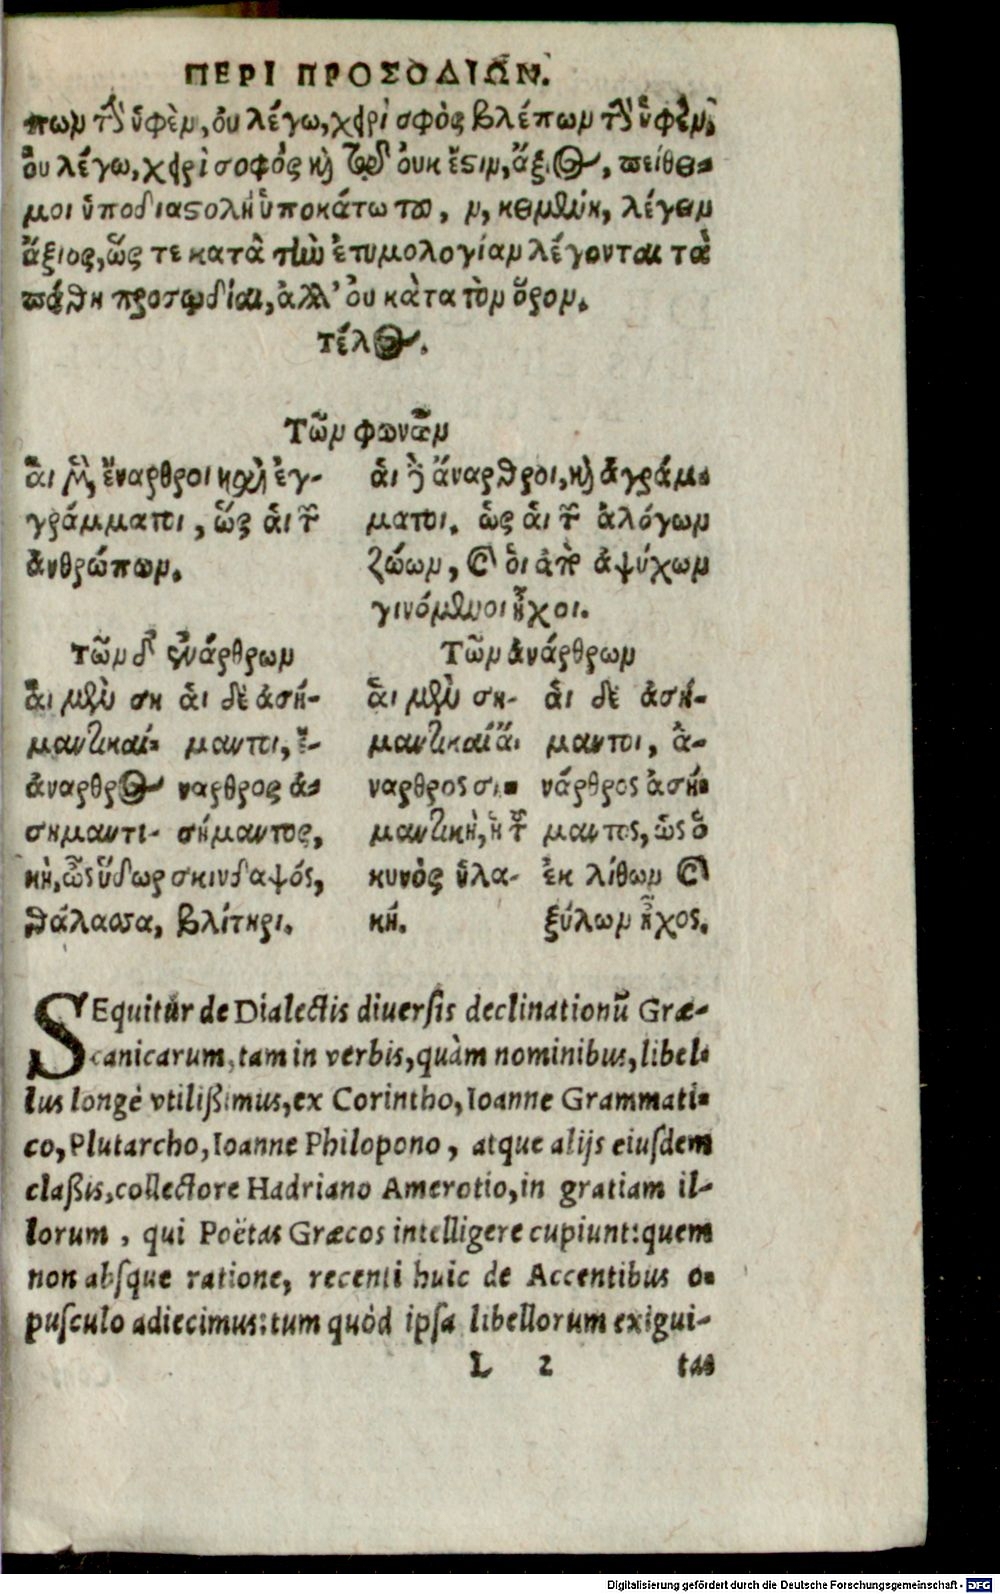 ΠΕΡΙ ΠΡΟΣΟΔΙΩΝ.
πων τὴν ὑφὲν, ὁυ λέγω, χειρὶ σφὸς βλέπων τὴν ὑφὲν,
ὁυ λέγω, χειρὶ σοφός καὶ τῷ ὀυκ ἔστιν, ἄξιος, πείθε-
μοι ὑποδιαστολὴ ὑποκάτω το, ν, κειμένη, λέγειν
ἄξιος, ὥς τε κατὰ τὴν ἐτυμολογίαν λέγονται τὰ
πάθη προσῳδίαι, ἀλλ' ὀυ κὰτα τὸν ὅρον.
τέλος.
Τῶν φωνῶν
ἅι μὲν ἔναρθροι καὶ ἐγ-
γράμματοι, ὥς ἁι τῶν
ἀνθρώπων.
ἁι δὲ ἄναρθροι, καὶ ἀγράμ-
ματοι. ὡς ἁι τῶν ἀλόγων
ζώων, καὶ ὁι ἀπὸ ἀψύχων
γινόμενοι ἦχοι.
Τῶν δ' ἐνάρθρων
ἅι μὲν ση
μαντικαί·
ἀναρθρος
σημαντι-
κὴ, ὧς ὕδωρ
θάλασσα,
ἁι δὲ ἀσή-
μαντοι, ἔ-
ναρθρος ἀ-
σήμαντος,
σκινδαψός,
βλίτηρι.
Τῶν ἀνάρθρων
ἅι μὲν ση-
μαντικαί ἄ-
ναρθρος ση-
μαντικὴ, ἡ τῶν
κυνὸς ὕλα-
κή.
ἁι δὲ ἀσή-
μαντοι, ἀ-
νάρθρος ἀσή-
μαντος, ὡς ὁ
ἐκ λίθων καὶ
ξύλων ἦχος.
SEquitur de Dialectis diuersis declinationũ Græ-
canicarum, tam in verbis, quàm nominibus, libel-
lus longè vtilißimus, ex Corintho, Ioanne Grammati-
co, Plutarcho, Ioanne Philopono, atque alijs eiusdem
claßis, collectore Hadriano Amerotio, in gratiam il-
lorum, qui Poëtas Græcos intelligere cupiunt: quem
non absque ratione, recenti huic de Accentibus o-
pusculo adiecimus: tum quòd ipsa libellorum exigui-
L 2 tas
Digitalisierung gefördert durch die Deutsche Forschungsgemeinschaft - DFG